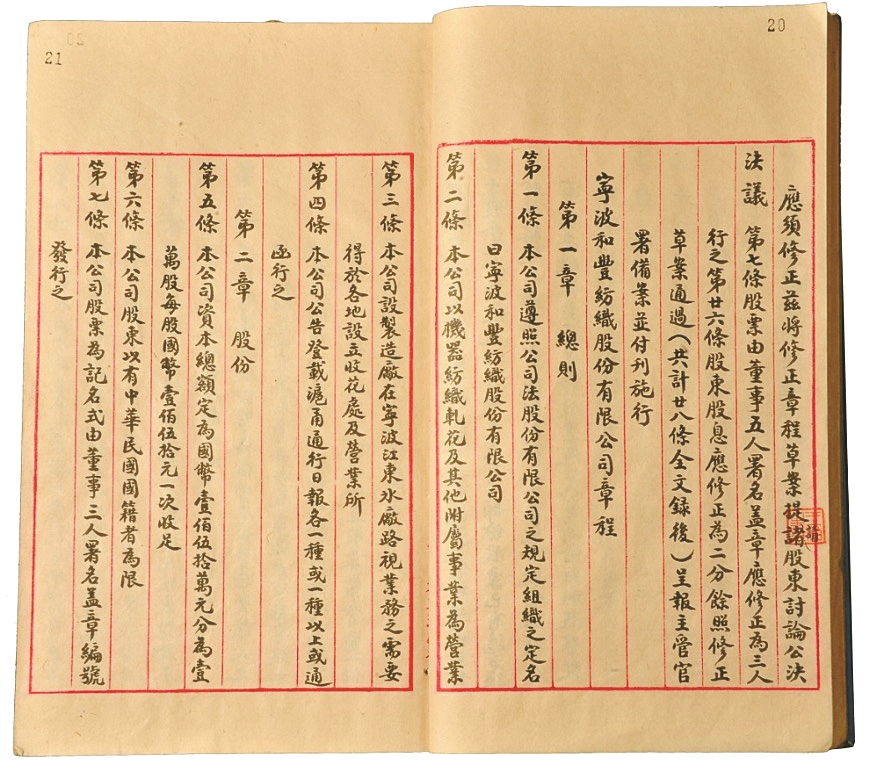 20
應須修正茲將修正章程草案提請股東討論公決
決議 第七條股票由董事五人署名蓋章應修正為三人
行之第廿六條股東股息應修正為二分餘照修正
草案通過(共計廿八條全文録後)呈報主管官
署備案並付刊施行
寧波和豐紡織股份有限公司章程
第一章 總則
第一條 本公司遵照公司法股份有限公司之規定組織之定名
曰寧波和豐紡織股份有限公司
第二條 本公司以機器紡織軋花及其他附屬事業為營業
21
第三條 本公司設製造廠在寧波江東冰廠路視業務之需要
得於各地設立收花處及營業所
第四條 本公司公告登載滬甬通行日報各一種或一種以上或通
函行之
第二章 股份
第五條 本公司資本總額定為國幣壹佰伍拾萬元分為壹
萬股每股國幣壹佰伍拾元一次收足
第六條 本公司股東以有中華民國國籍者為限
第七條 本公司股票為記名式由董事三人署名蓋章編號
發行之